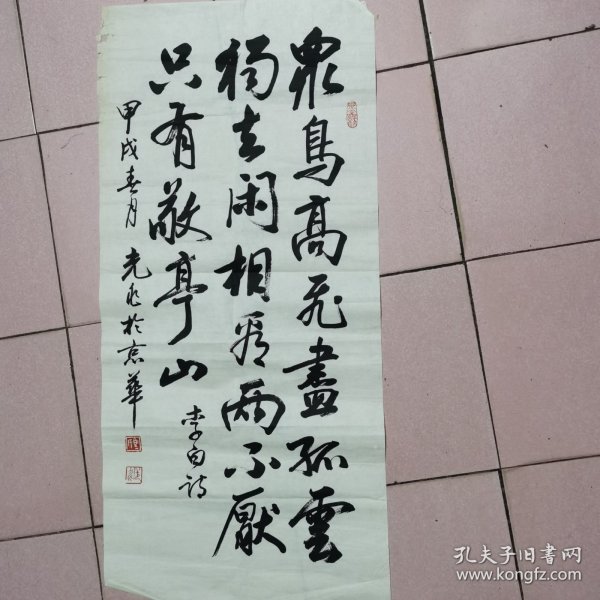 眾鳥高飛盡孤雲
獨去閑相看兩不厭
只有敬亭山
李白詩
甲戌春月 光 於京華
孔夫子旧书网
www.kongfz.com